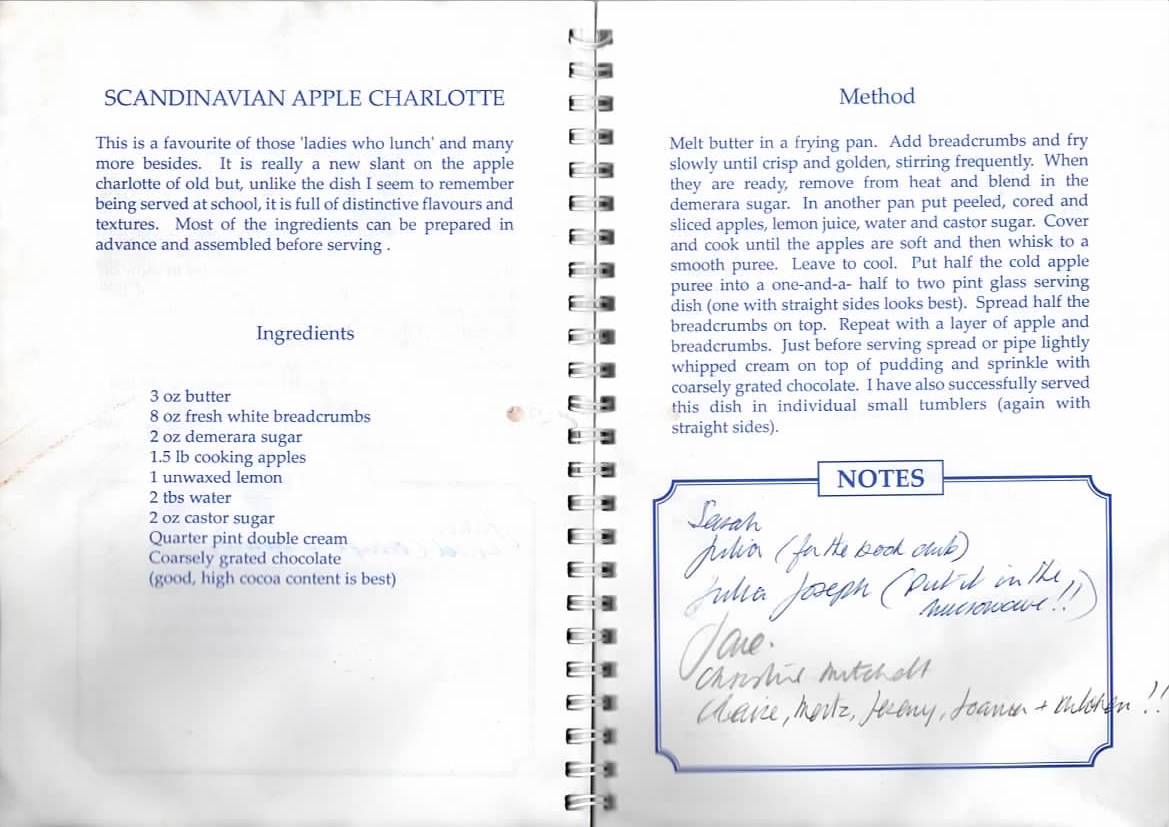 SCANDINAVIAN APPLE CHARLOTTE
This is a favourite of those 'ladies who lunch' and many
more besides. It is really a new slant on the apple
charlotte of old but, unlike the dish I seem to remember
being served at school, it is full of distinctive flavours and
textures. Most of the ingredients can be prepared in
advance and assembled before serving .
Ingredients
3 oz butter
8 oz fresh white breadcrumbs
2 oz demerara sugar
1.5 lb cooking apples
1 unwaxed lemon
2 tbs water
2 oz castor sugar
Quarter pint double cream
Coarsely grated chocolate
(good, high cocoa content is best)
Method
Melt butter in a frying pan. Add breadcrumbs and fry
slowly until crisp and golden, stirring frequently. When
they are ready, remove from heat and blend in the
demerara sugar. In another pan put peeled, cored and
sliced apples, lemon juice, water and castor sugar. Cover
and cook until the apples are soft and then whisk to a
smooth puree. Leave to cool. Put half the cold apple
puree into a one-and-a- half to two pint glass serving
dish (one with straight sides looks best). Spread half the
breadcrumbs on top. Repeat with a layer of apple and
breadcrumbs. Just before serving spread or pipe lightly
whipped cream on top of pudding and sprinkle with
coarsely grated chocolate. I have also successfully served
this dish in individual small tumblers (again with
straight sides).
NOTES
Sarah
Julia (for the book club)
Julia Joseph (Put it in the
microwave!!)
Jane.
Christine Mitchell
Claire, Jeremy, Joanna + children !!